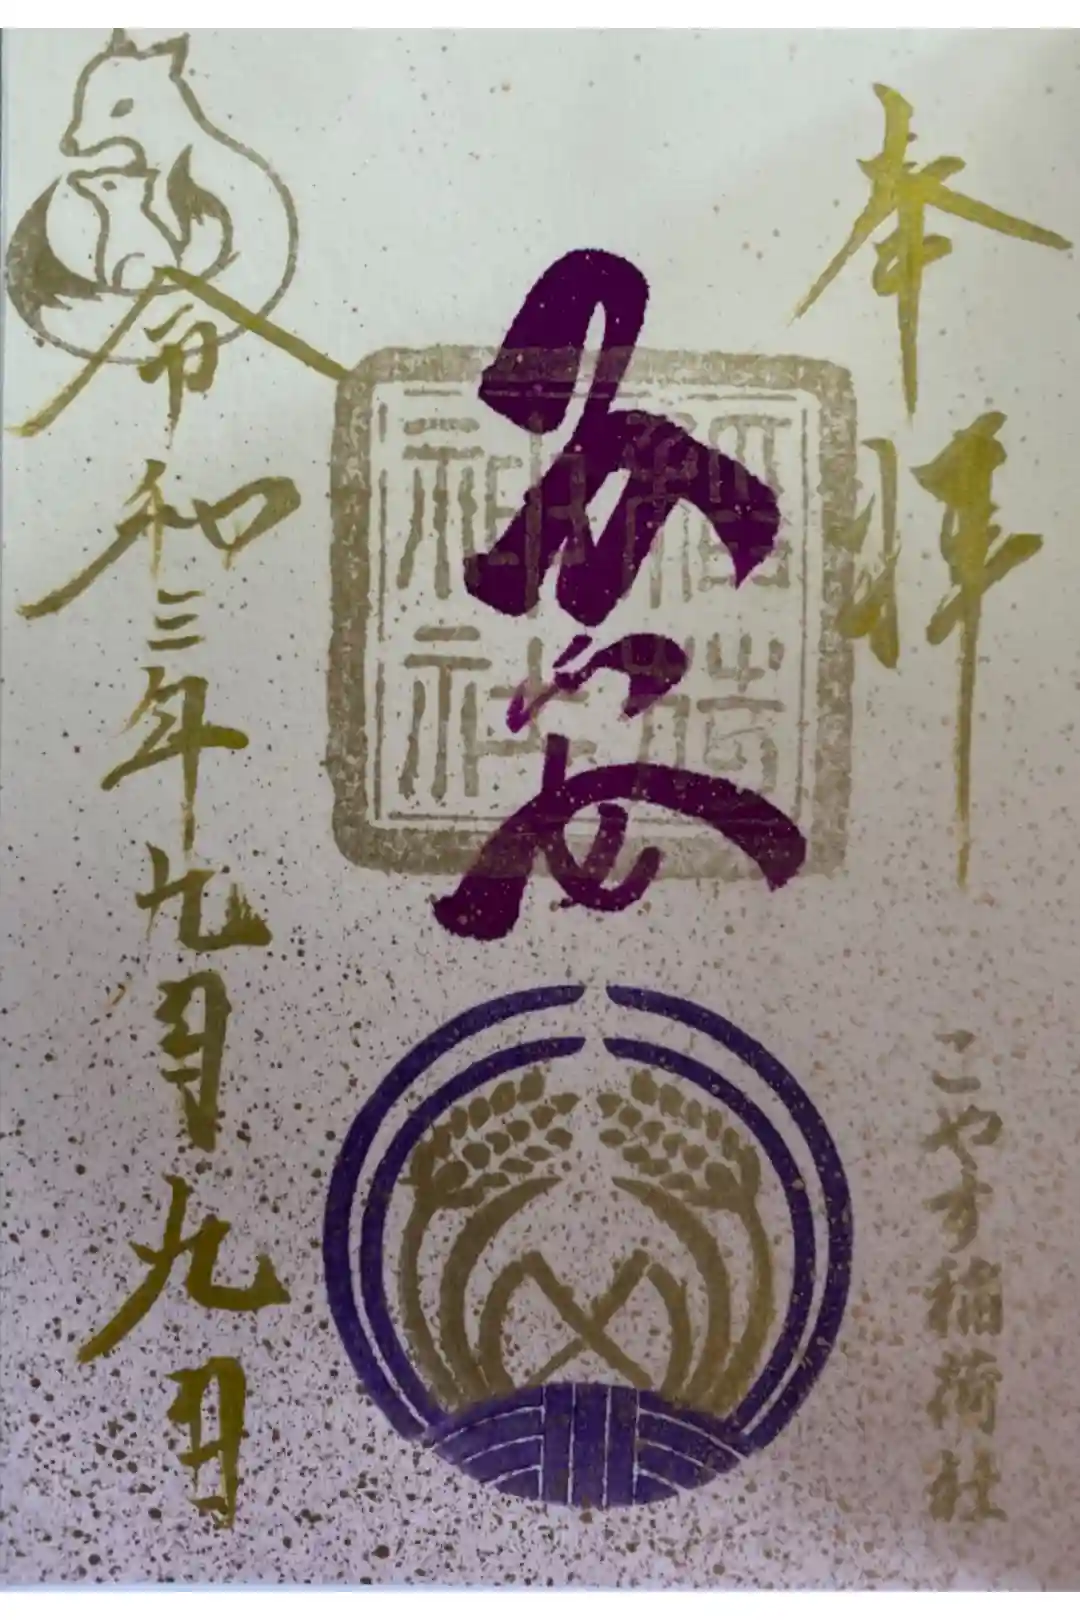 奉拝
こやす稲荷社
子安
稲荷
神社
令和三年九月九日